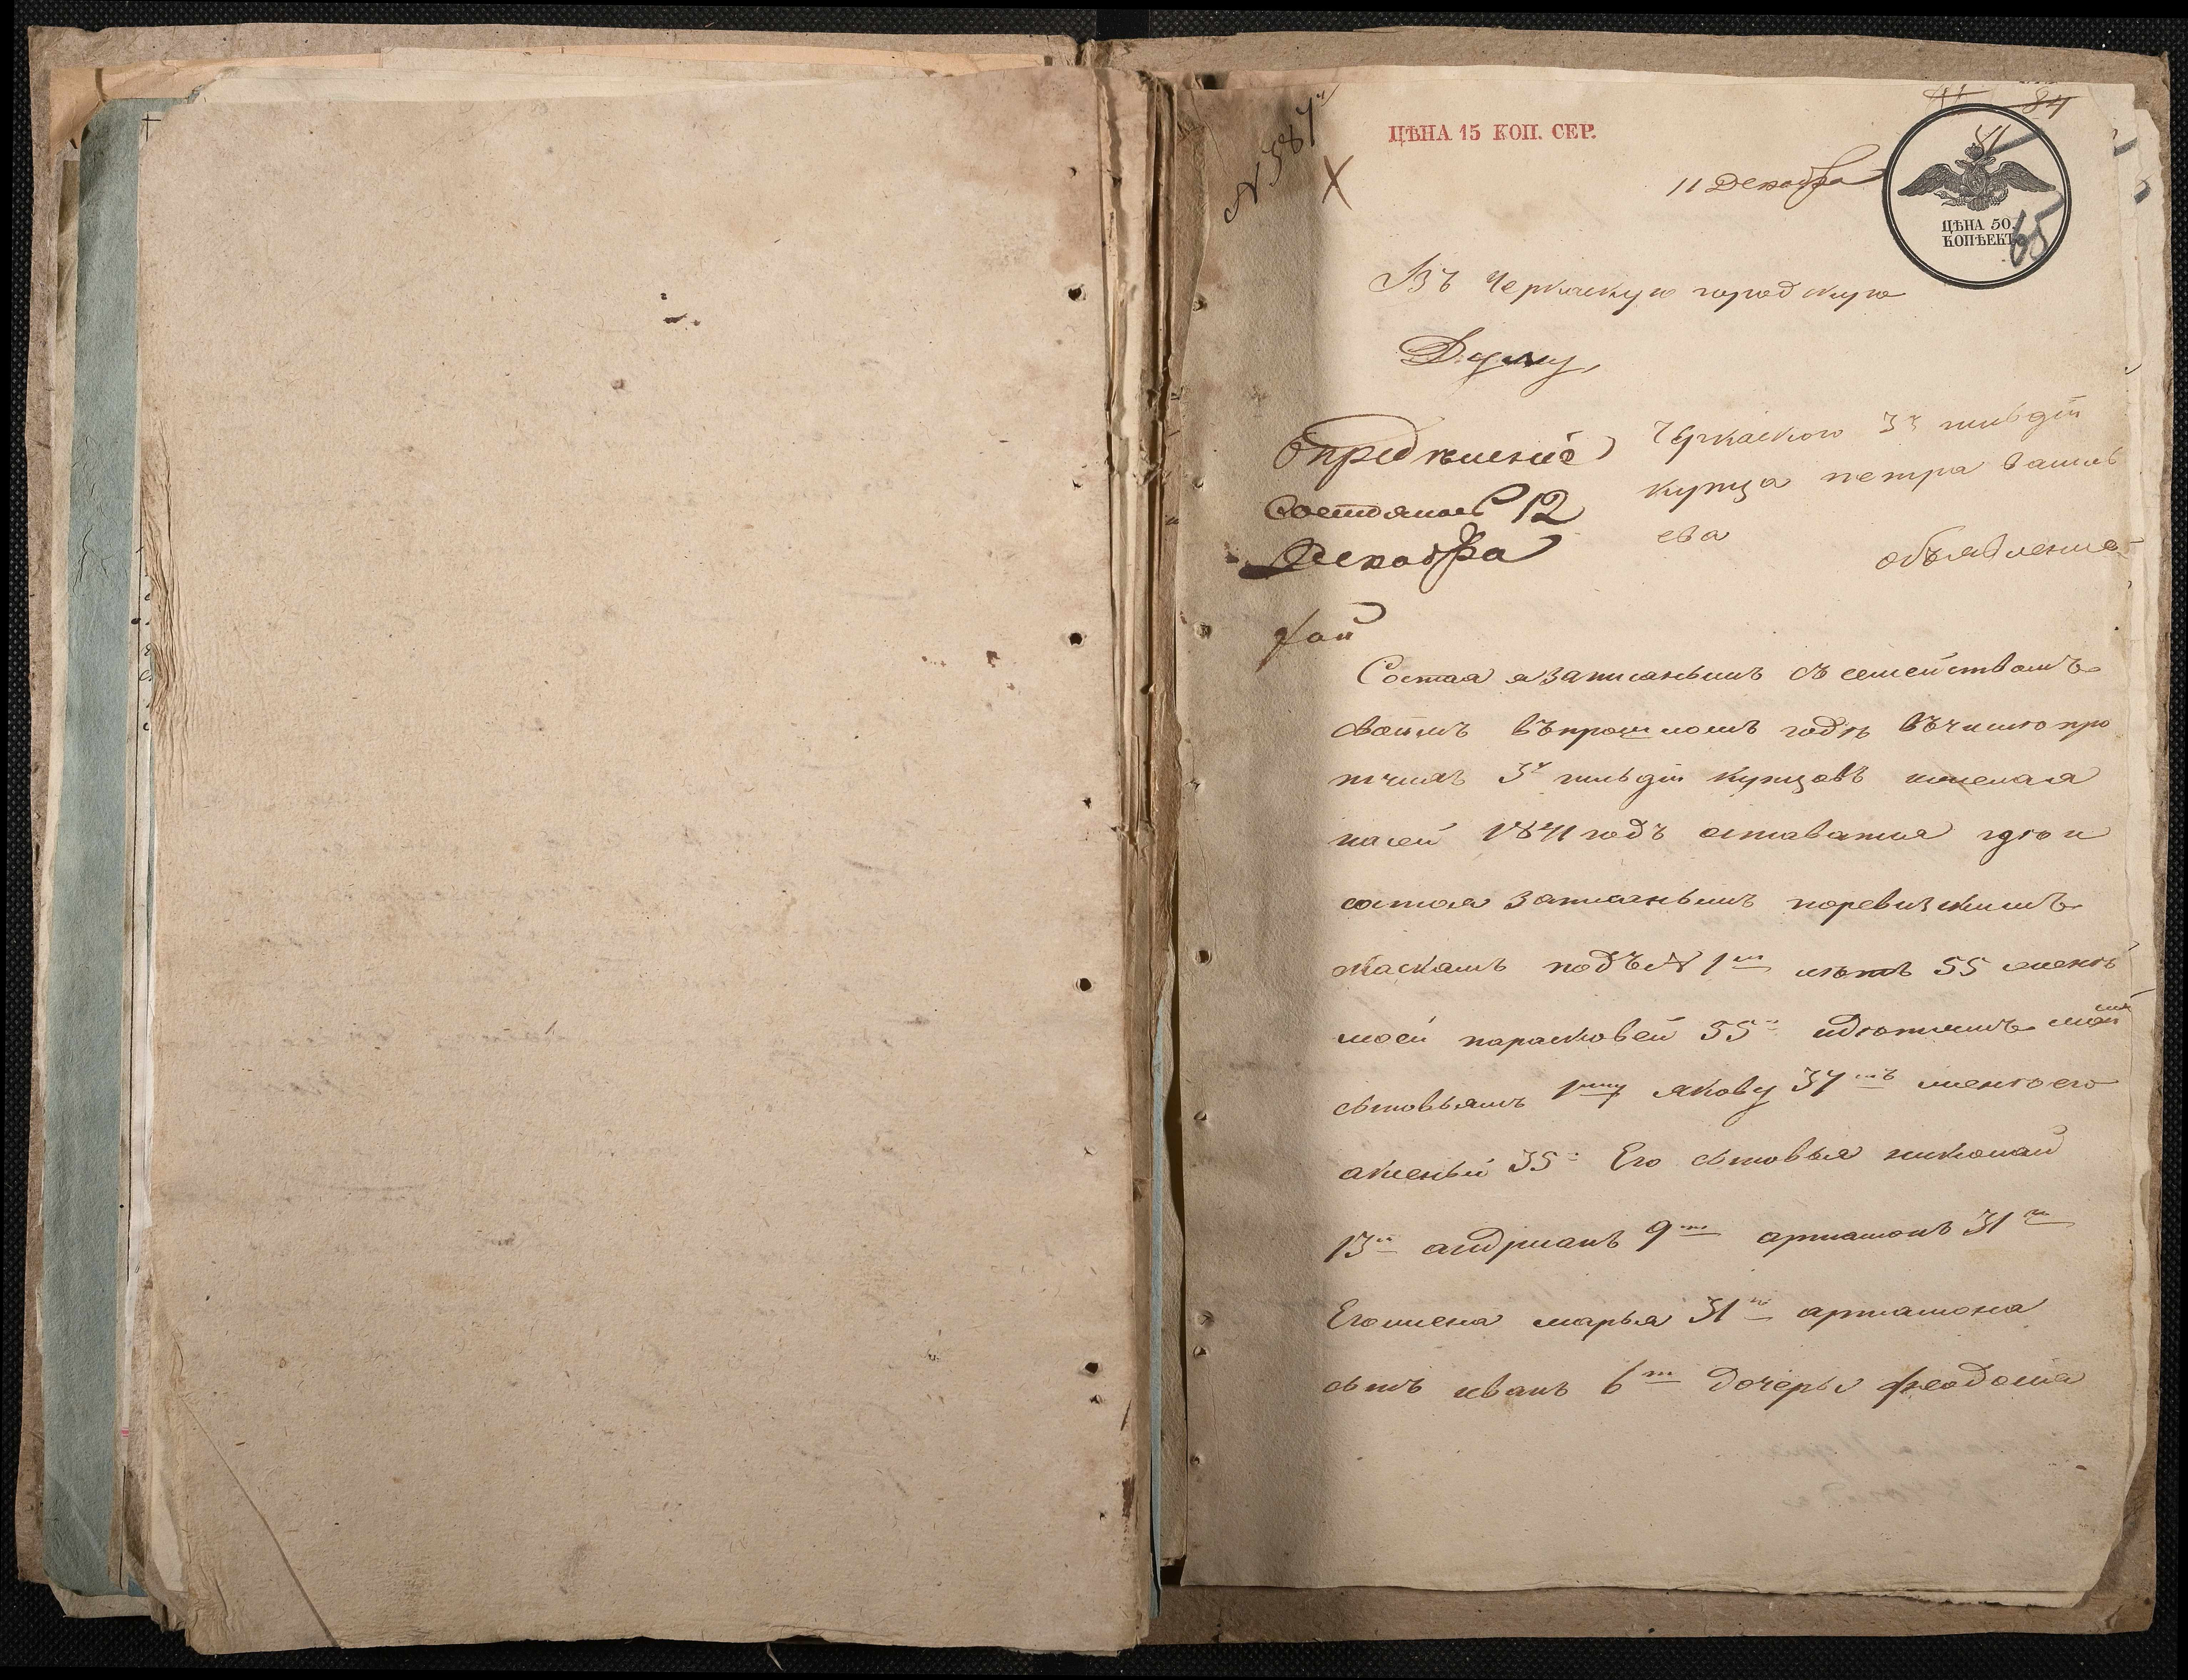 ЦѢНА 15 КОП. СЕР.
11 Декабря
ЦѢНА 50.
КОПѢЕКЪ
65
Въ Черкаскую городскую
Думу,
Опредѣленіе
Состоялось 12
Декабря
Черкаскаго 3й гильдіи
купца петра василь
ева
объявленіе
Состоя я записаннымъ съ семействомъ
своимъ въ прошломъ годѣ въ число про
тчихъ 3й гильдіи купцовъ и желая
на сей 1841 годъ оставатся
состоя записаннымъ по ревизскимъ
скаскамъ подъ № 1м лѣтъ 55 женѣ
моей парасковеи 55 и дѣтямъ моимъ
сыновьямъ 1му якову 37мъ жена его
аксенья 35 Его сыновья николай
13и андрианъ 9ти артамонъ 31
Его жена марья 31 артамона
сынъ иванъ 6ти дочерь феодосия